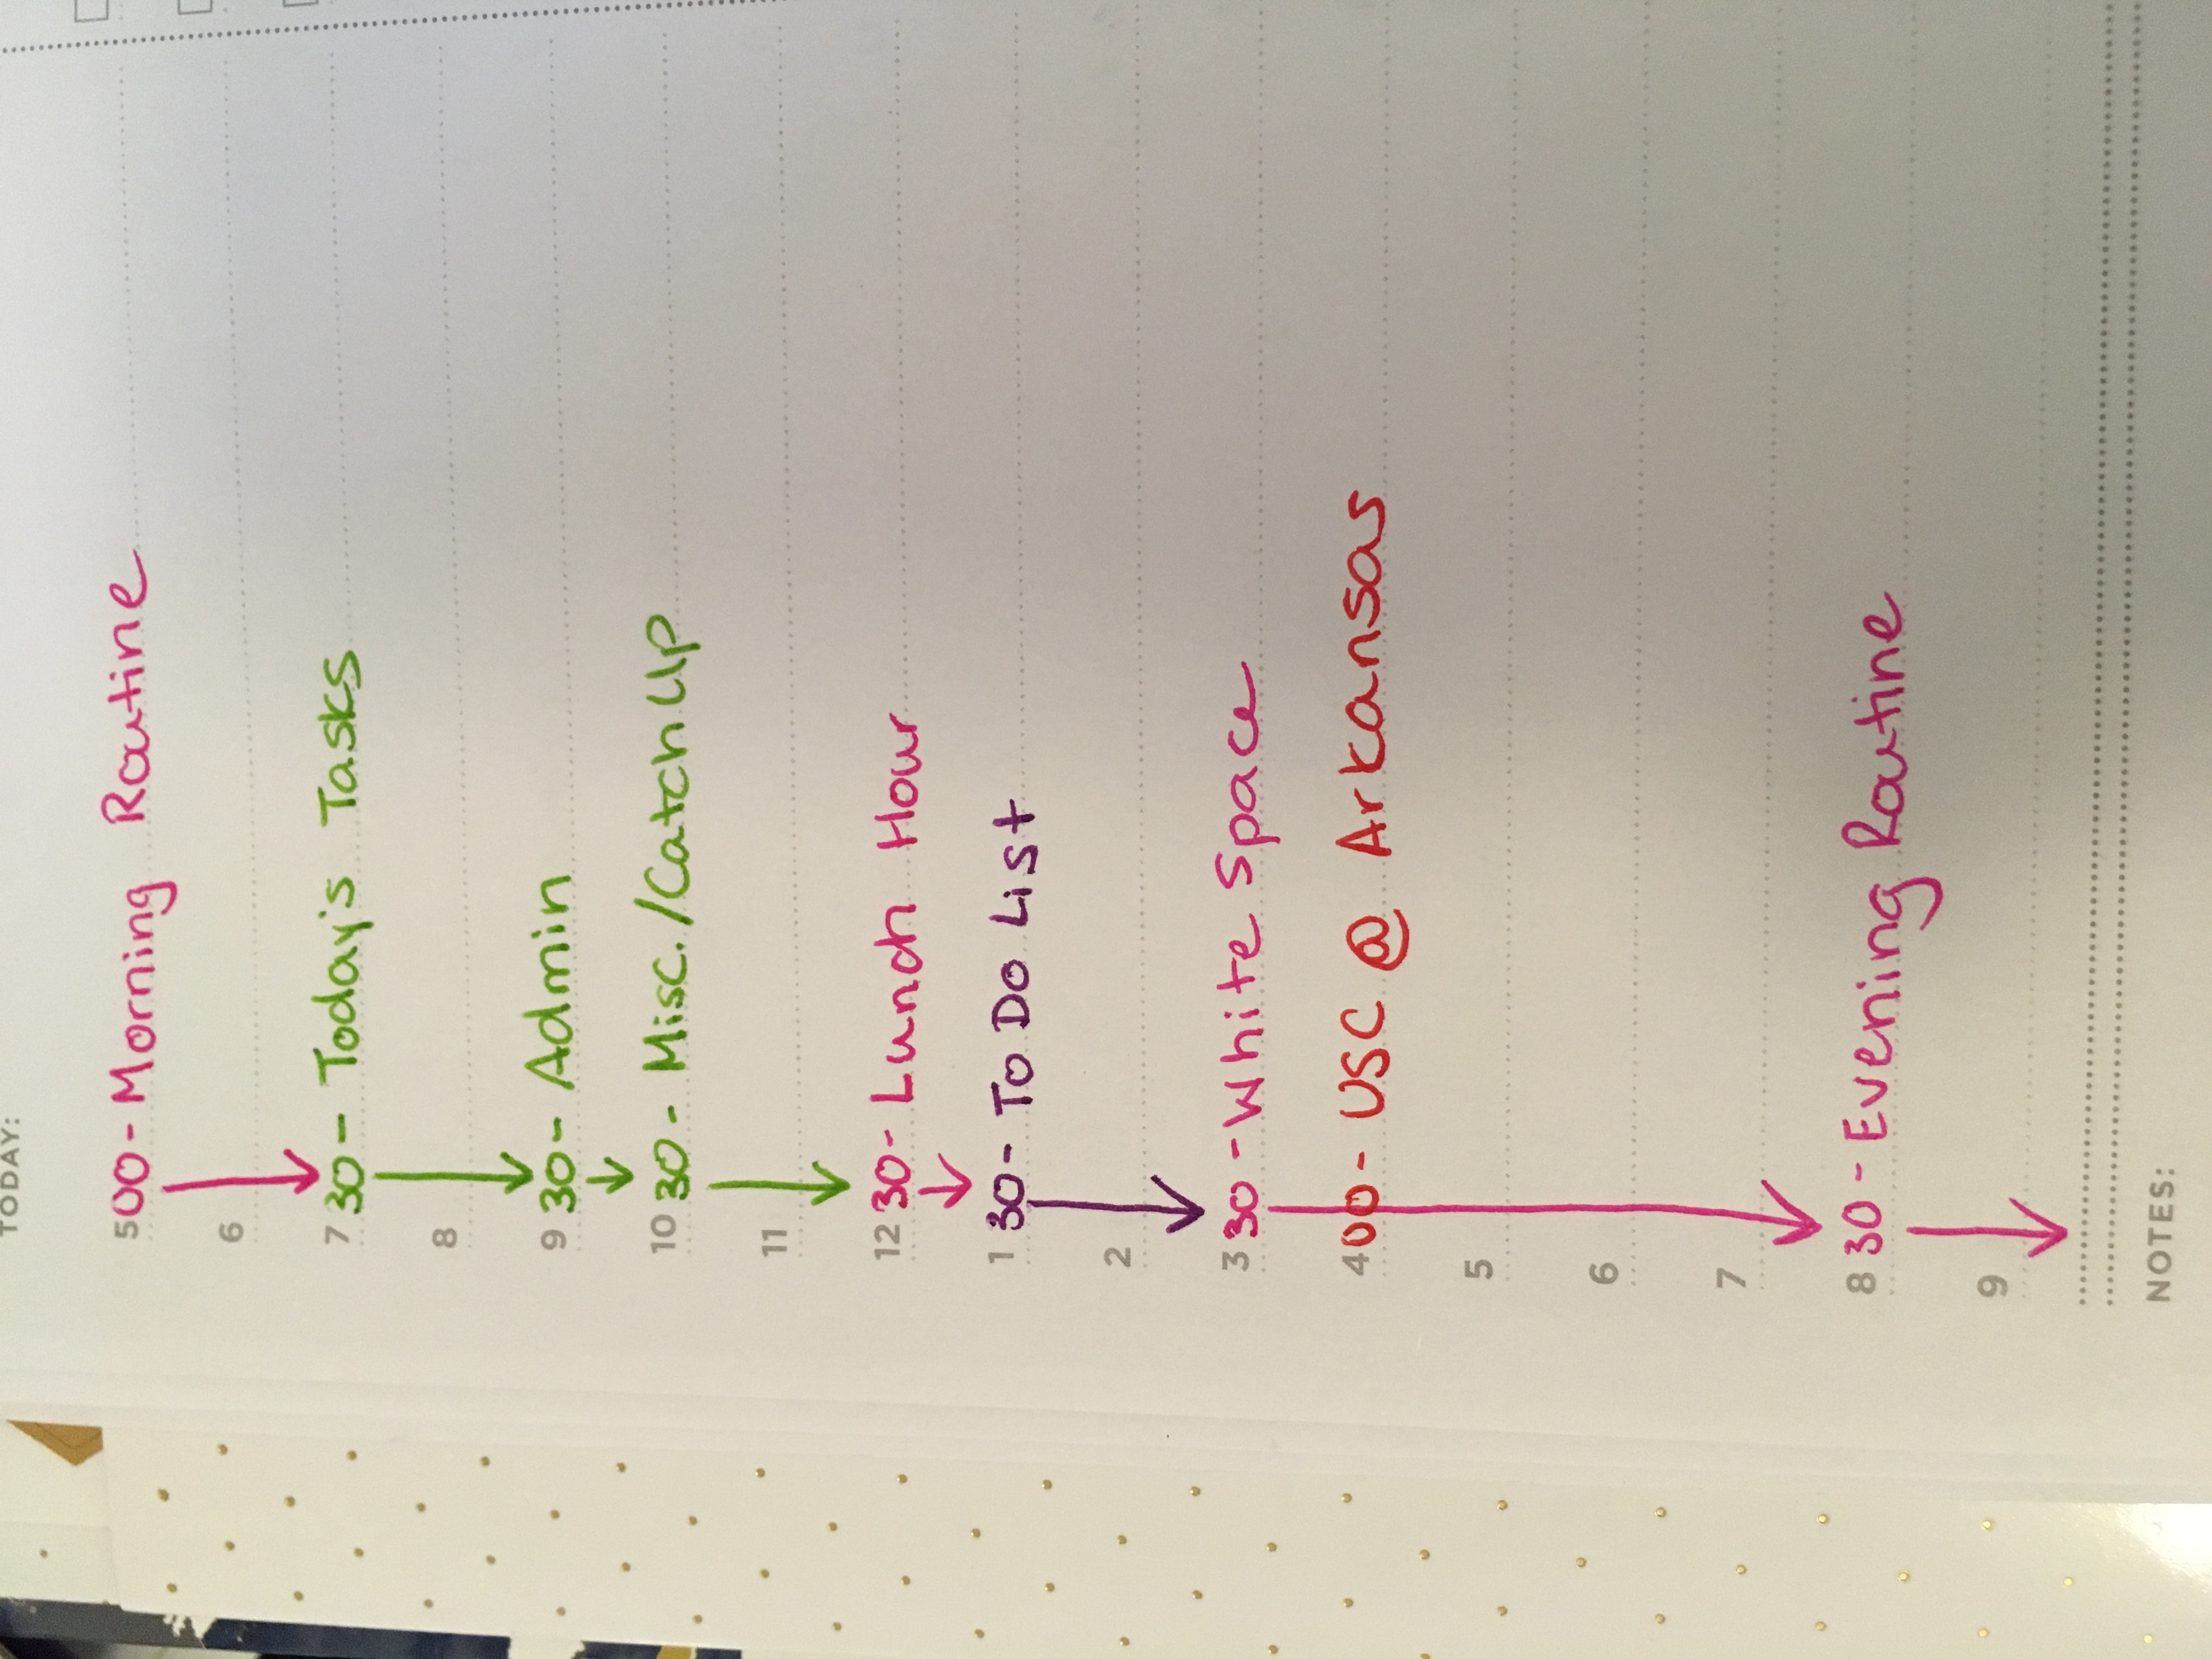 TODAY:
500- Morning Routine
6
7 30- Today's Tasks
8
9 30- Admin
10 30- Misc./Catch Up
11
12 30- Lunch Hour
1 30- To Do List
2
3 30- White Space
400- USC @ Arkansas
5
6
7
8 30- Evening Routine
9
NOTES: